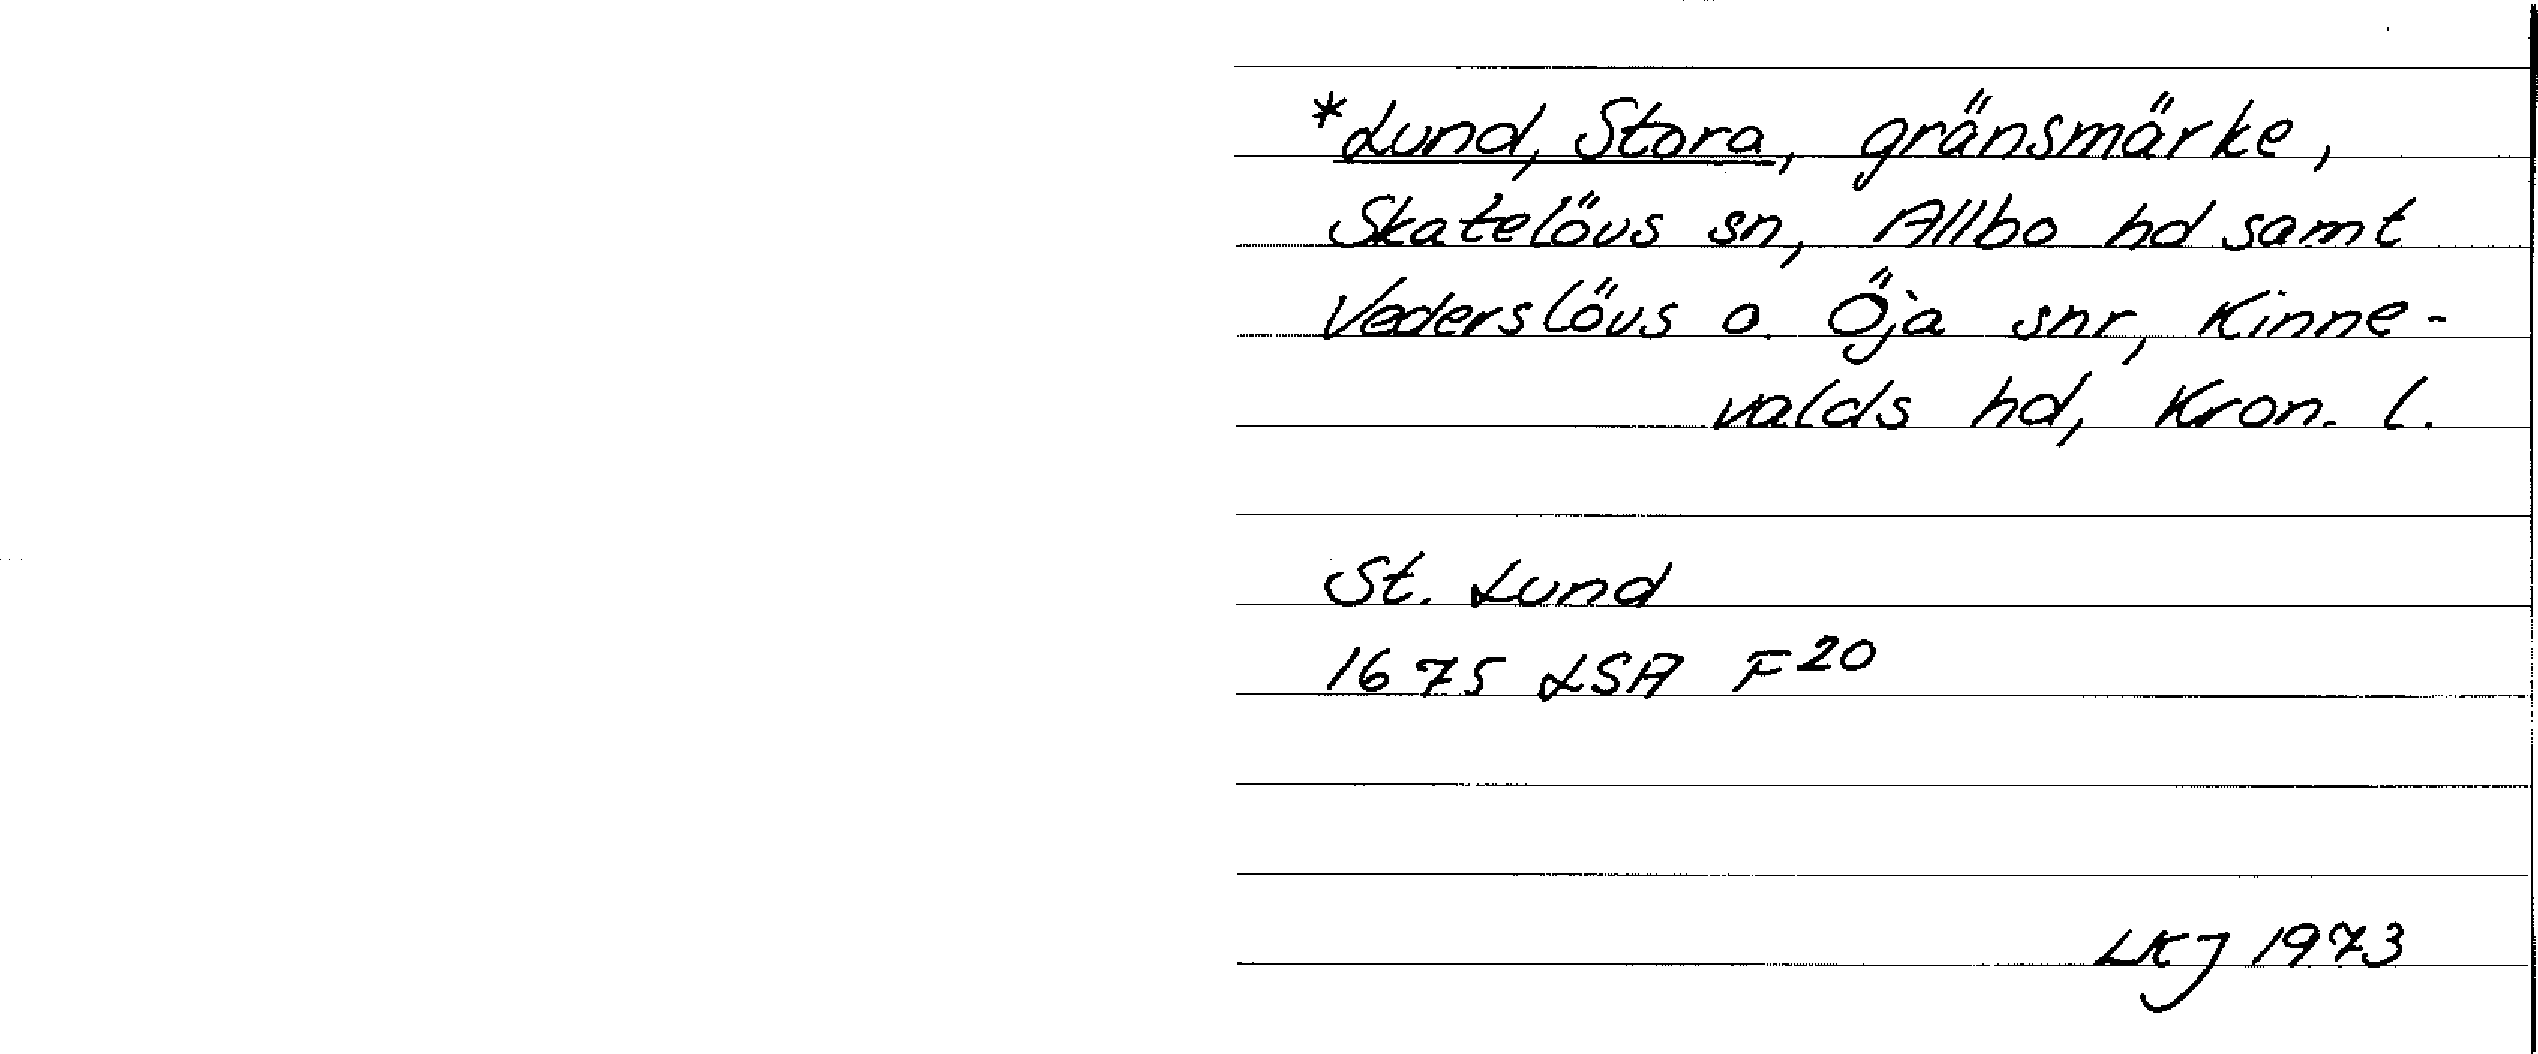 *Lund, Stora, gränsmärke,
Skatelövs sn, Allbo hd samt
Vederslövs o. Öja snr, Kinne-
valds hd, Kron. l.
St. Lund
1675 LSA F20
LKJ 1973